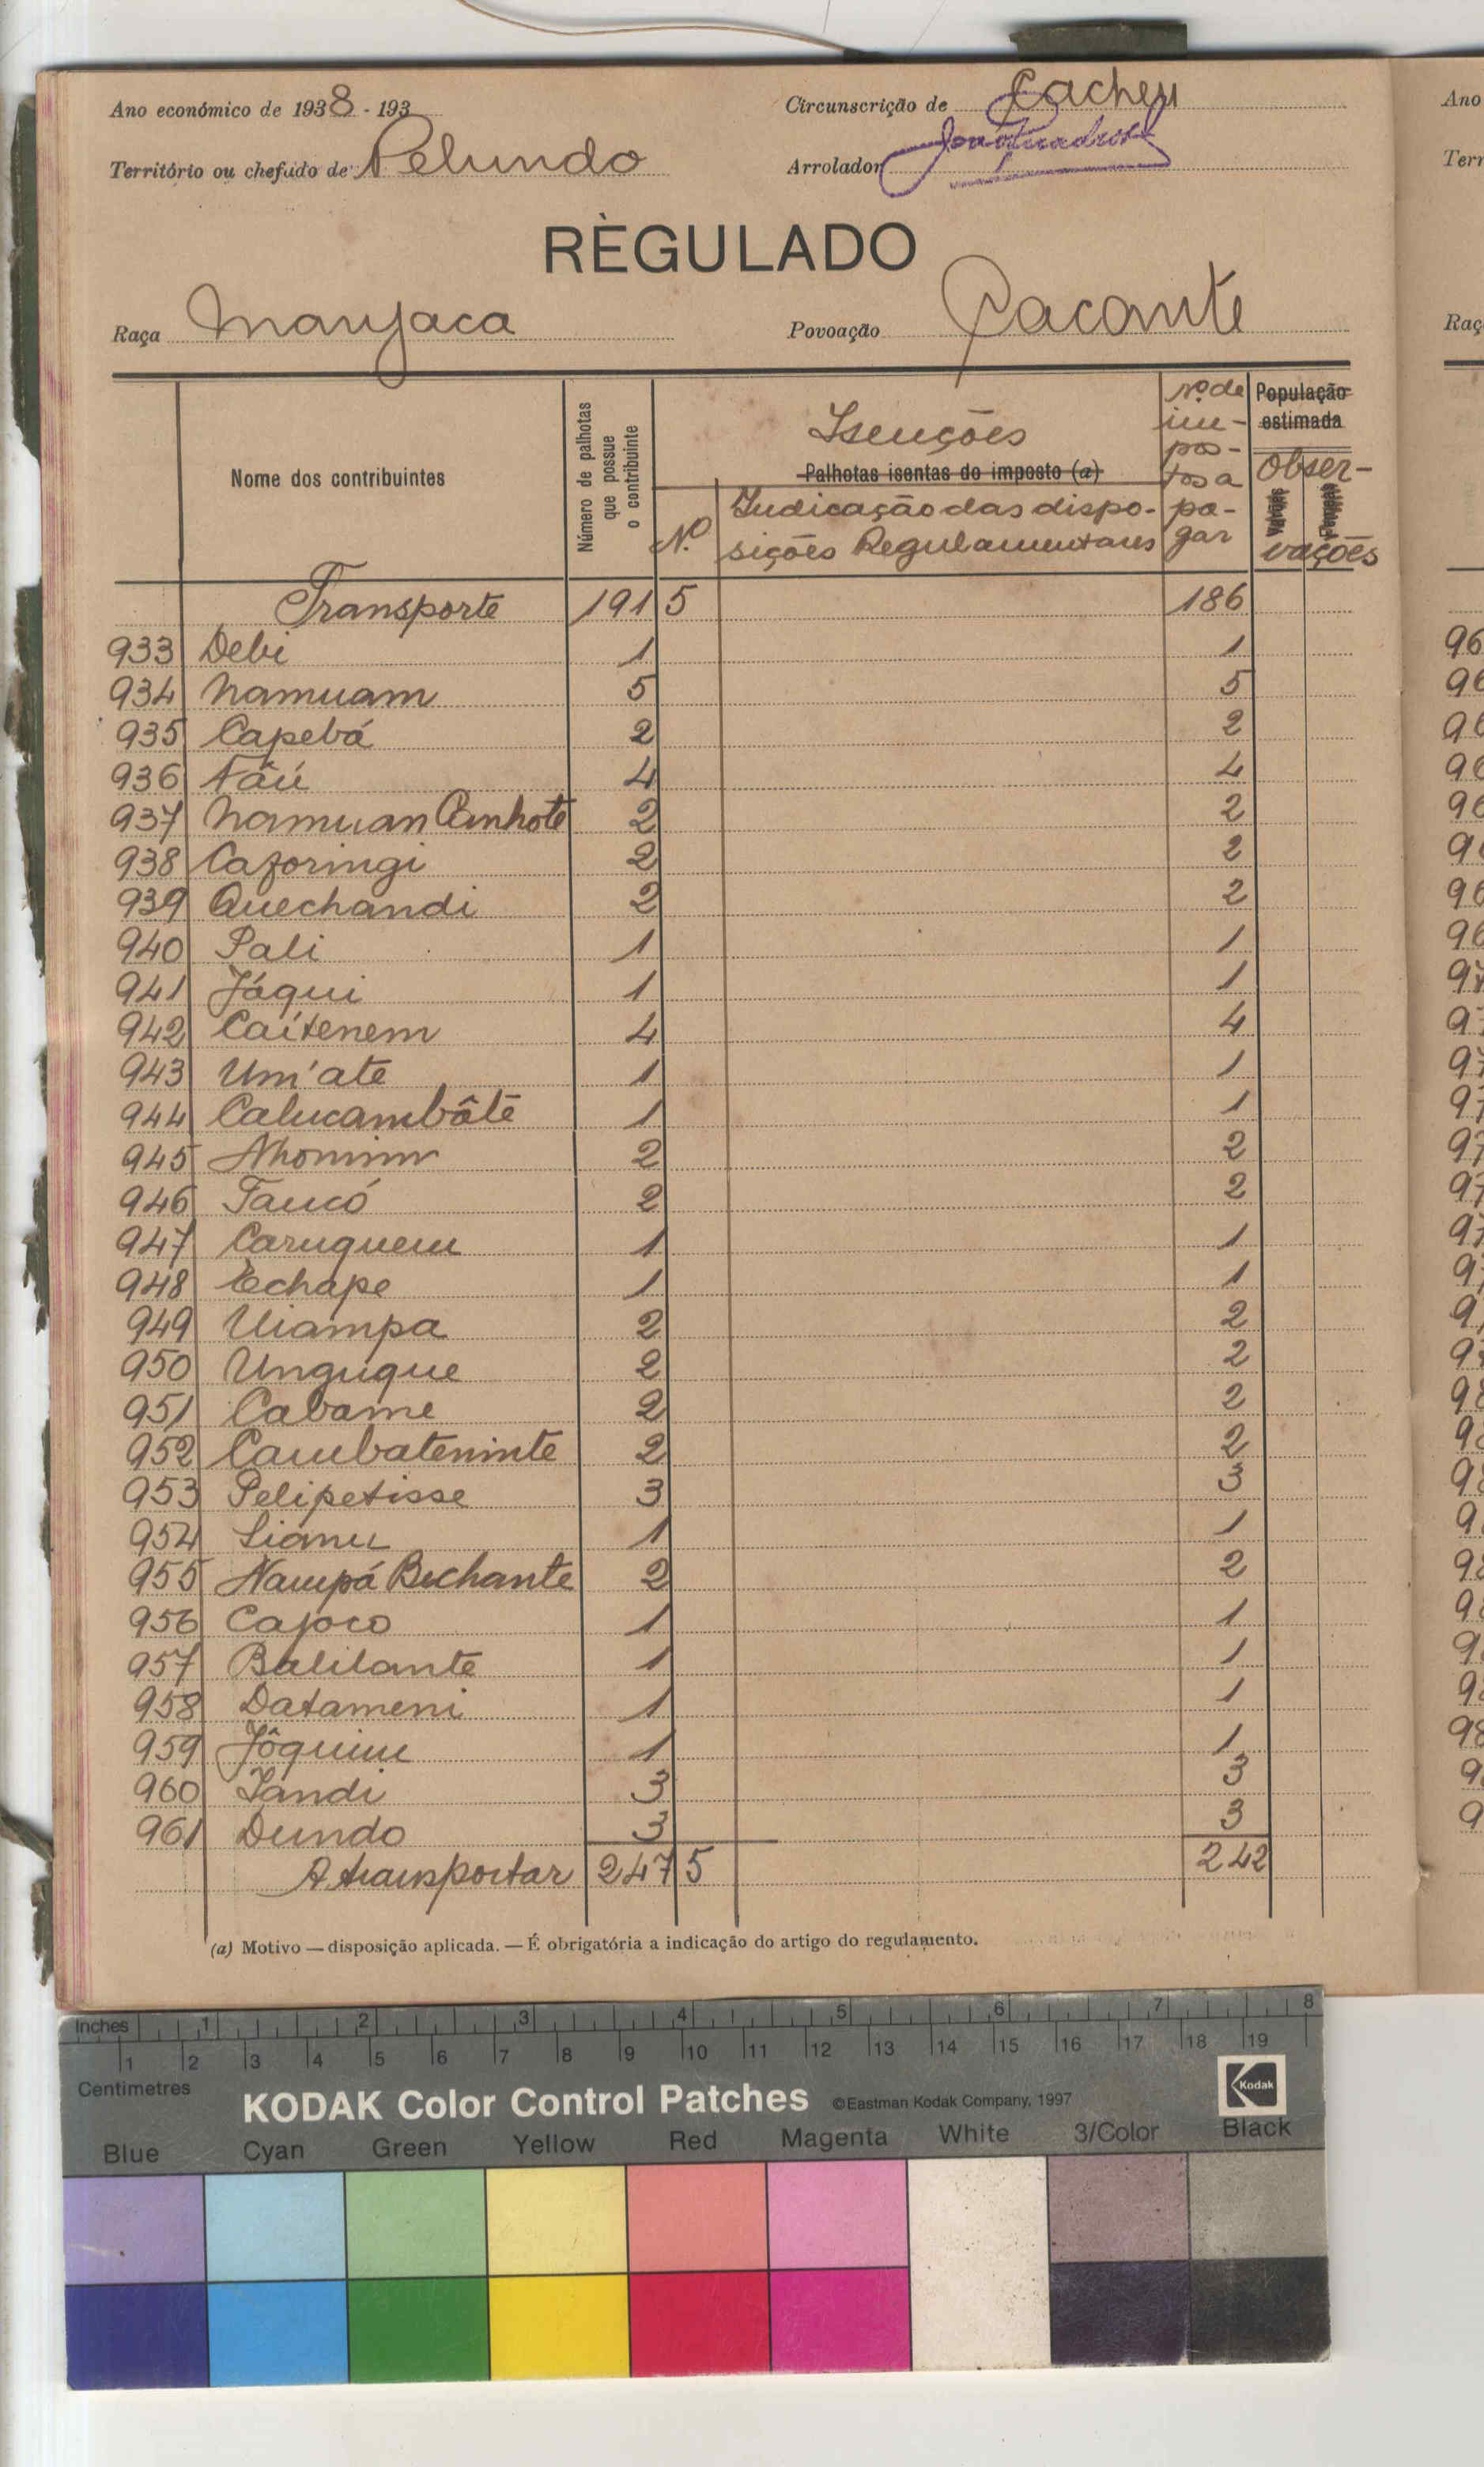 Ano económico de 1938 - 193
Circunscrição de Cacheu
Território ou chefado de Pelundo
Arrolador
RÈGULADO
Raça Manjaca
Povoação Cacante
Nome dos contribuintes
Número de palhotas que possue o contribuinte
Isenções
Palhotas isentas do imposto (a)
Nº
Indicação das dispo-
sições Regulamentares
Nº de
im-
pos-
tos a
pa-
gar
População
estimada
Obser-
vações
Transporte 191 5 186
933 Debi 1 1
934 Namuam 5 5
935 Capebá 2 2
936 Nãú 4 4
937 Namuan Canhote 2 2
938 Caforingi 2 2
939 Quechandi 2 2
940 Pali 1 1
941 Jáqui 1 1
942 Caítenem 4 4
943 Um'ate 1 1
944 Calucambôte 1 1
945 Nhominm 2 2
946 Faucó 2 2
947 Caruquem 1 1
948 Echape 1 1
949 Uiampa 2 2
950 Unguque 2 2
951 Cabame 2 2
952 Cambateninte 2 2
953 Pelipetisse 3 3
954 Liánu 1 1
955 Nampá Bechante 2 2
956 Cajoco 1 1
957 Balilante 1 1
958 Datameni 1 1
959 Jôquim 1 1
960 Jandi 3 3
961 Dundo 3 3
A transportar 247 5 242
(a) Motivo — disposição aplicada. — É obrigatória a indicação do artigo do regulamento.
Ano
Terr
Raç
Inches 1 2 3 4 5 6 7 8
1 2 3 4 5 6 7 8 9 10 11 12 13 14 15 16 17 18 19
Centimetres
KODAK Color Control Patches ©Eastman Kodak Company, 1997 Kodak
Blue Cyan Green Yellow Red Magenta White 3/Color Black